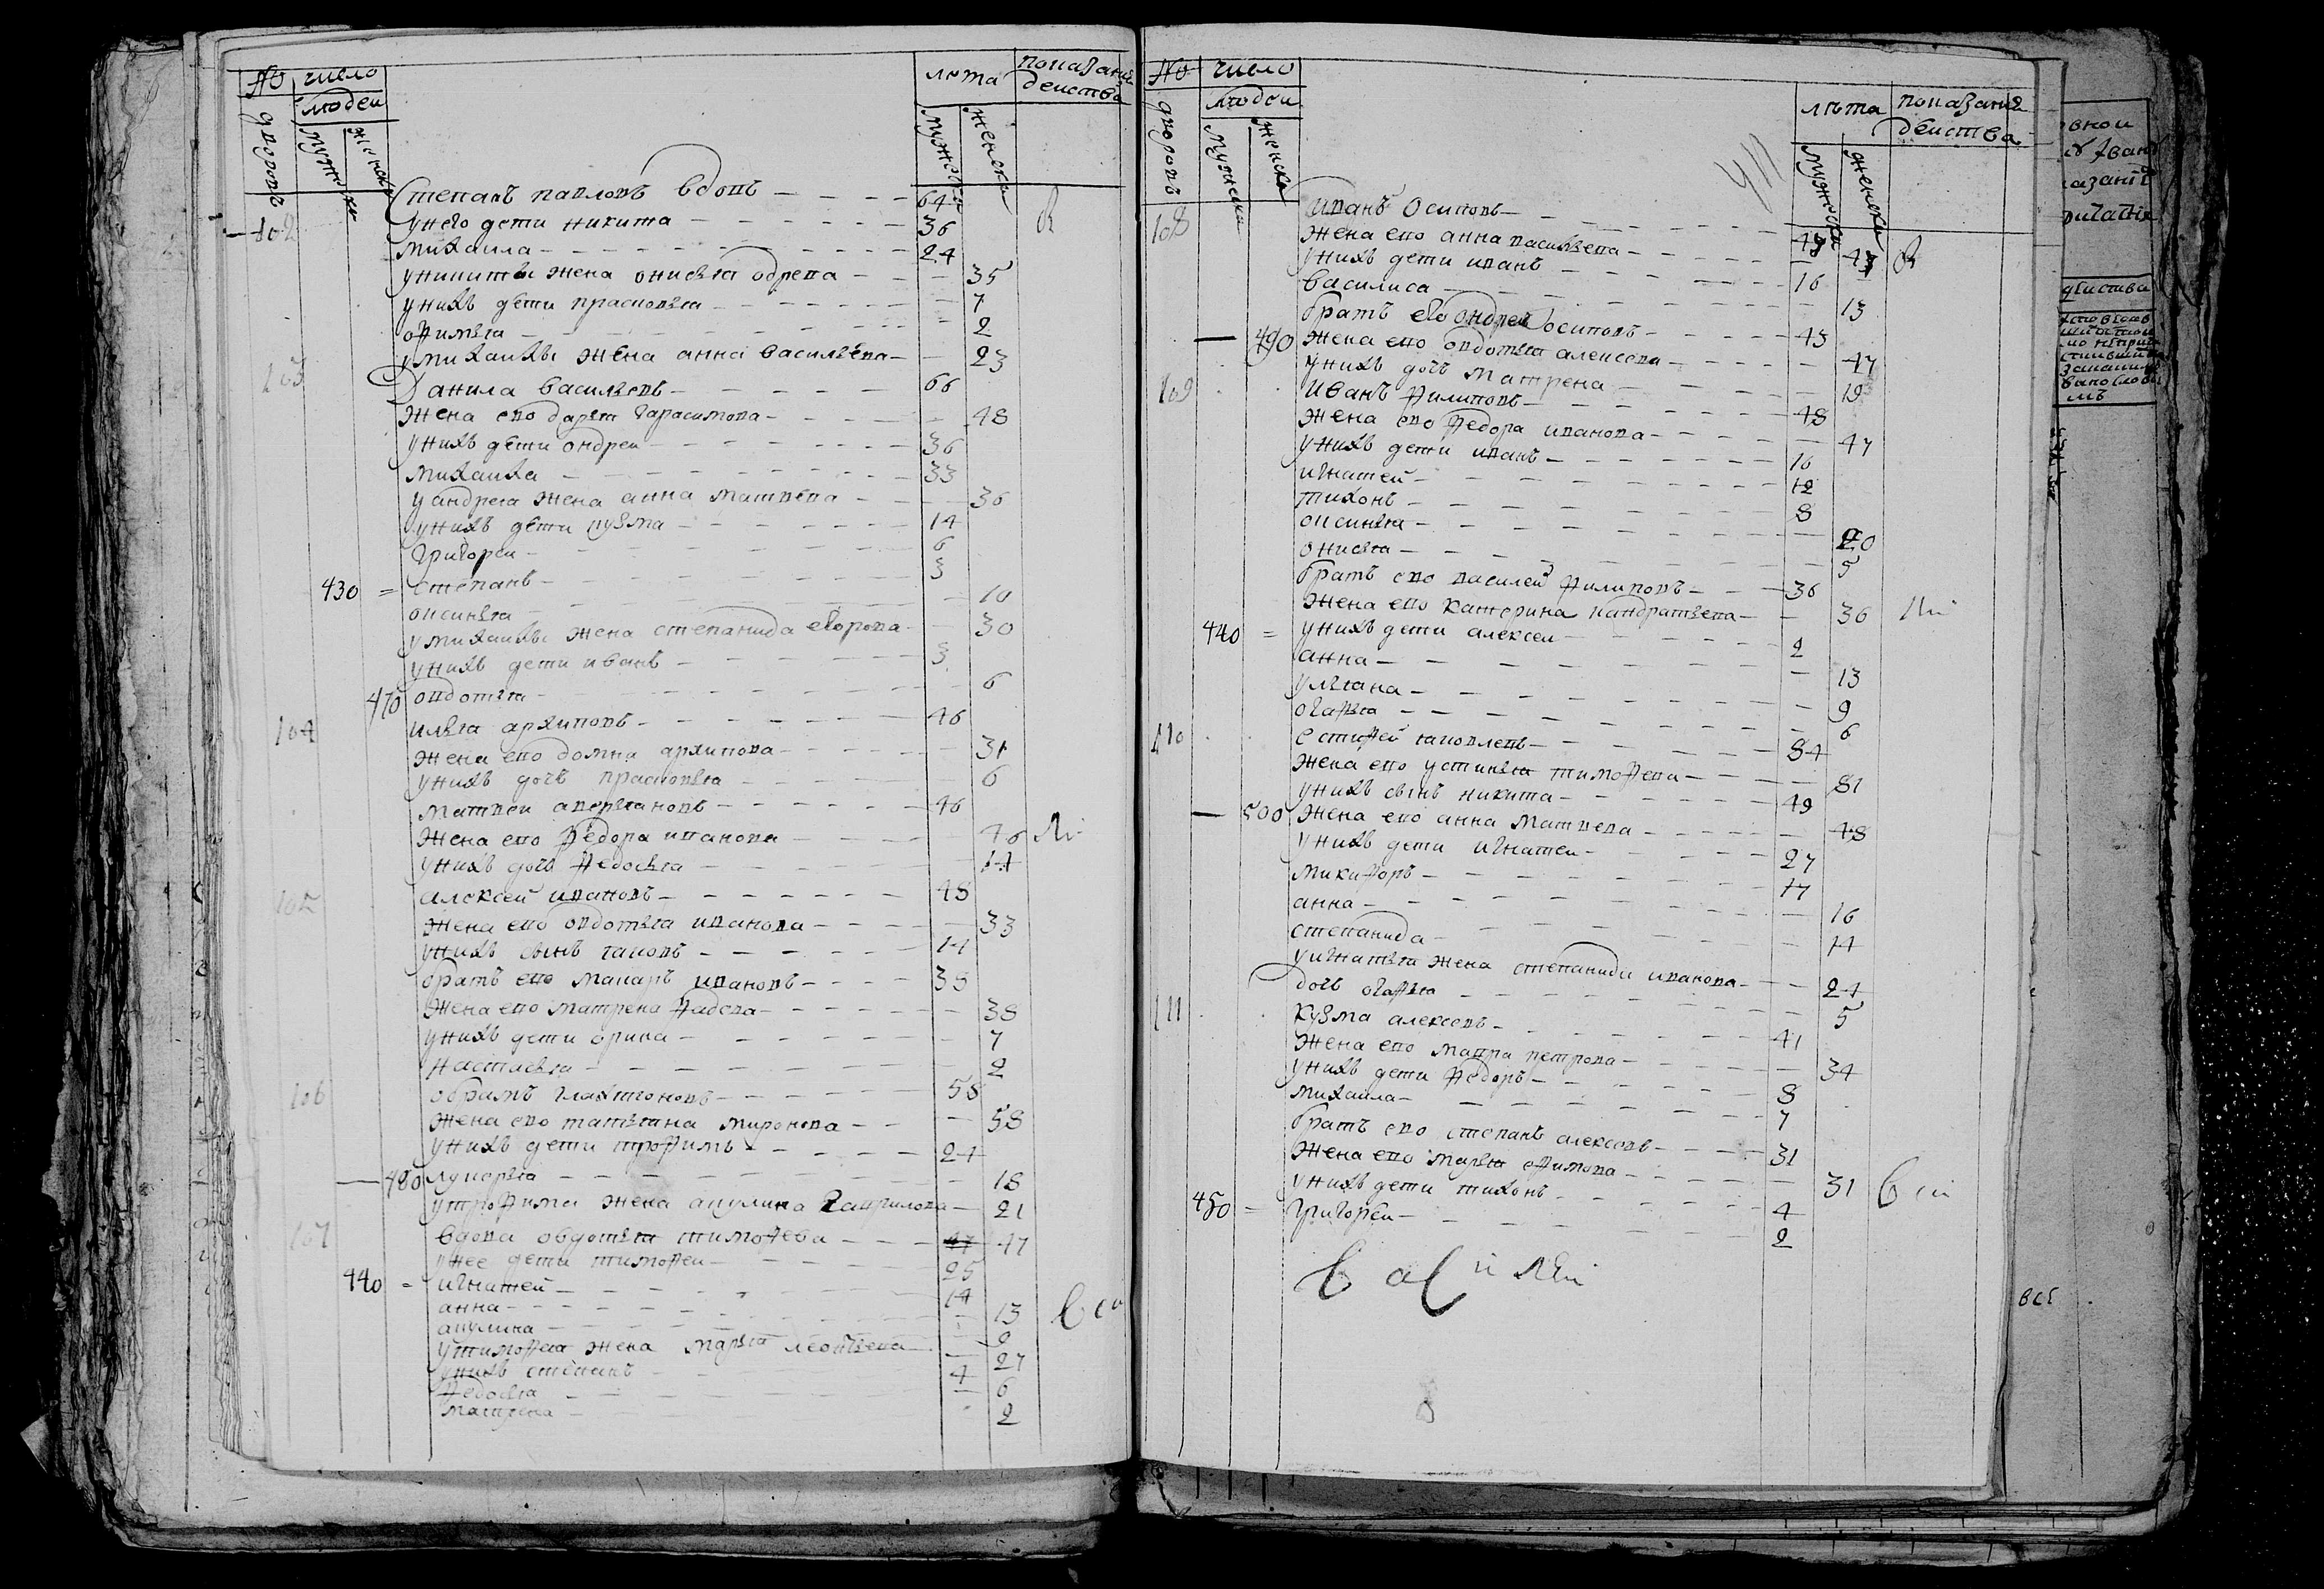 No число лѣта показаніе
людеи деиства
дворовъ мужеска женска мужеска женска
102 Степанъ павловъ вдовъ 64
унего дети никита 36
михаила 24
уникиты жена онисья одрева 35
унихъ дети прасковья 7
офимья 2
умихаилы жена анна васильева 23
103 Данила васильевъ 66
жена ево дарья гарасимова 48
унихъ дети ондреи 36
михаила 33
уандрея жена анна матвева 36
унихъ дети кузма 14
григореи 6
430 = степанъ 3
оксинья 10
умихаилы жена степанида егорова 30
унихъ дети иванъ 3
470 овдотья 6
104 илья архиповъ 46
жена ево домна архипова 31
унихъ дочь прасковья 6
матвеи аверьяновъ 46
жена ево федора иванова 46
унихъ дочь федосья 14
105 алексеи ивановъ 48
жена ево овдотья иванова 33
унихъ сынъ яковъ 14
братъ ево макаръ ивановъ 38
жена ево матрена фадева 38
унихъ дети орина 7
настасья 2
106 58
жена ево татьяна миронова 58
унихъ дети трофимъ 24
480 лукерья 18
утрофима жена акулина гаврилова 21
107 вдова овдотья тимофева 47
унее дети тимофеи 25
440 = игнатеи 14
анна 13
акулина 9
утимофея жена марья леонтьева 27
унихъ степанъ 4
федосья 6
матрена 2
No число лѣта показание
людеи деиства
дворовъ мужеска женска мужеска женска
108 иванъ осиповъ
жена ево анна васильева
унихъ дети иванъ 16
василиса 13
братъ его ондреи осиповъ 43
490 жена ево овдотья алексева 47
унихъ дочь матрена 19
109 иванъ филиповъ 48
жена ево федора иванова 47
унихъ дети иванъ 16
игнатеи 12
тихонъ 8
оксинья 20
онисья 5
братъ ево василеи филиповъ 36
жена ево катерина кандратьева 36
440 = унихъ дети алексеи 2
анна 13
ульяна 9
огафья 6
110 естифеи яковлевъ 84
жена ево устинья тимофева 81
унихъ сынъ никита 49
500 жена ево анна матвева 48
унихъ дети игнатеи 27
микифоръ 17
анна 16
степанида 14
уигнатья жена степанида иванова 24
дочь огафья 5
111 кузма алексевъ 41
жена ево мавра петрова 34
унихъ дети федоръ 8
михаила 7
братъ ево степанъ алексевъ 31
жена ево марья ефимова 31
унихъ дети тихонъ 4
450 = григореи 2
василеи